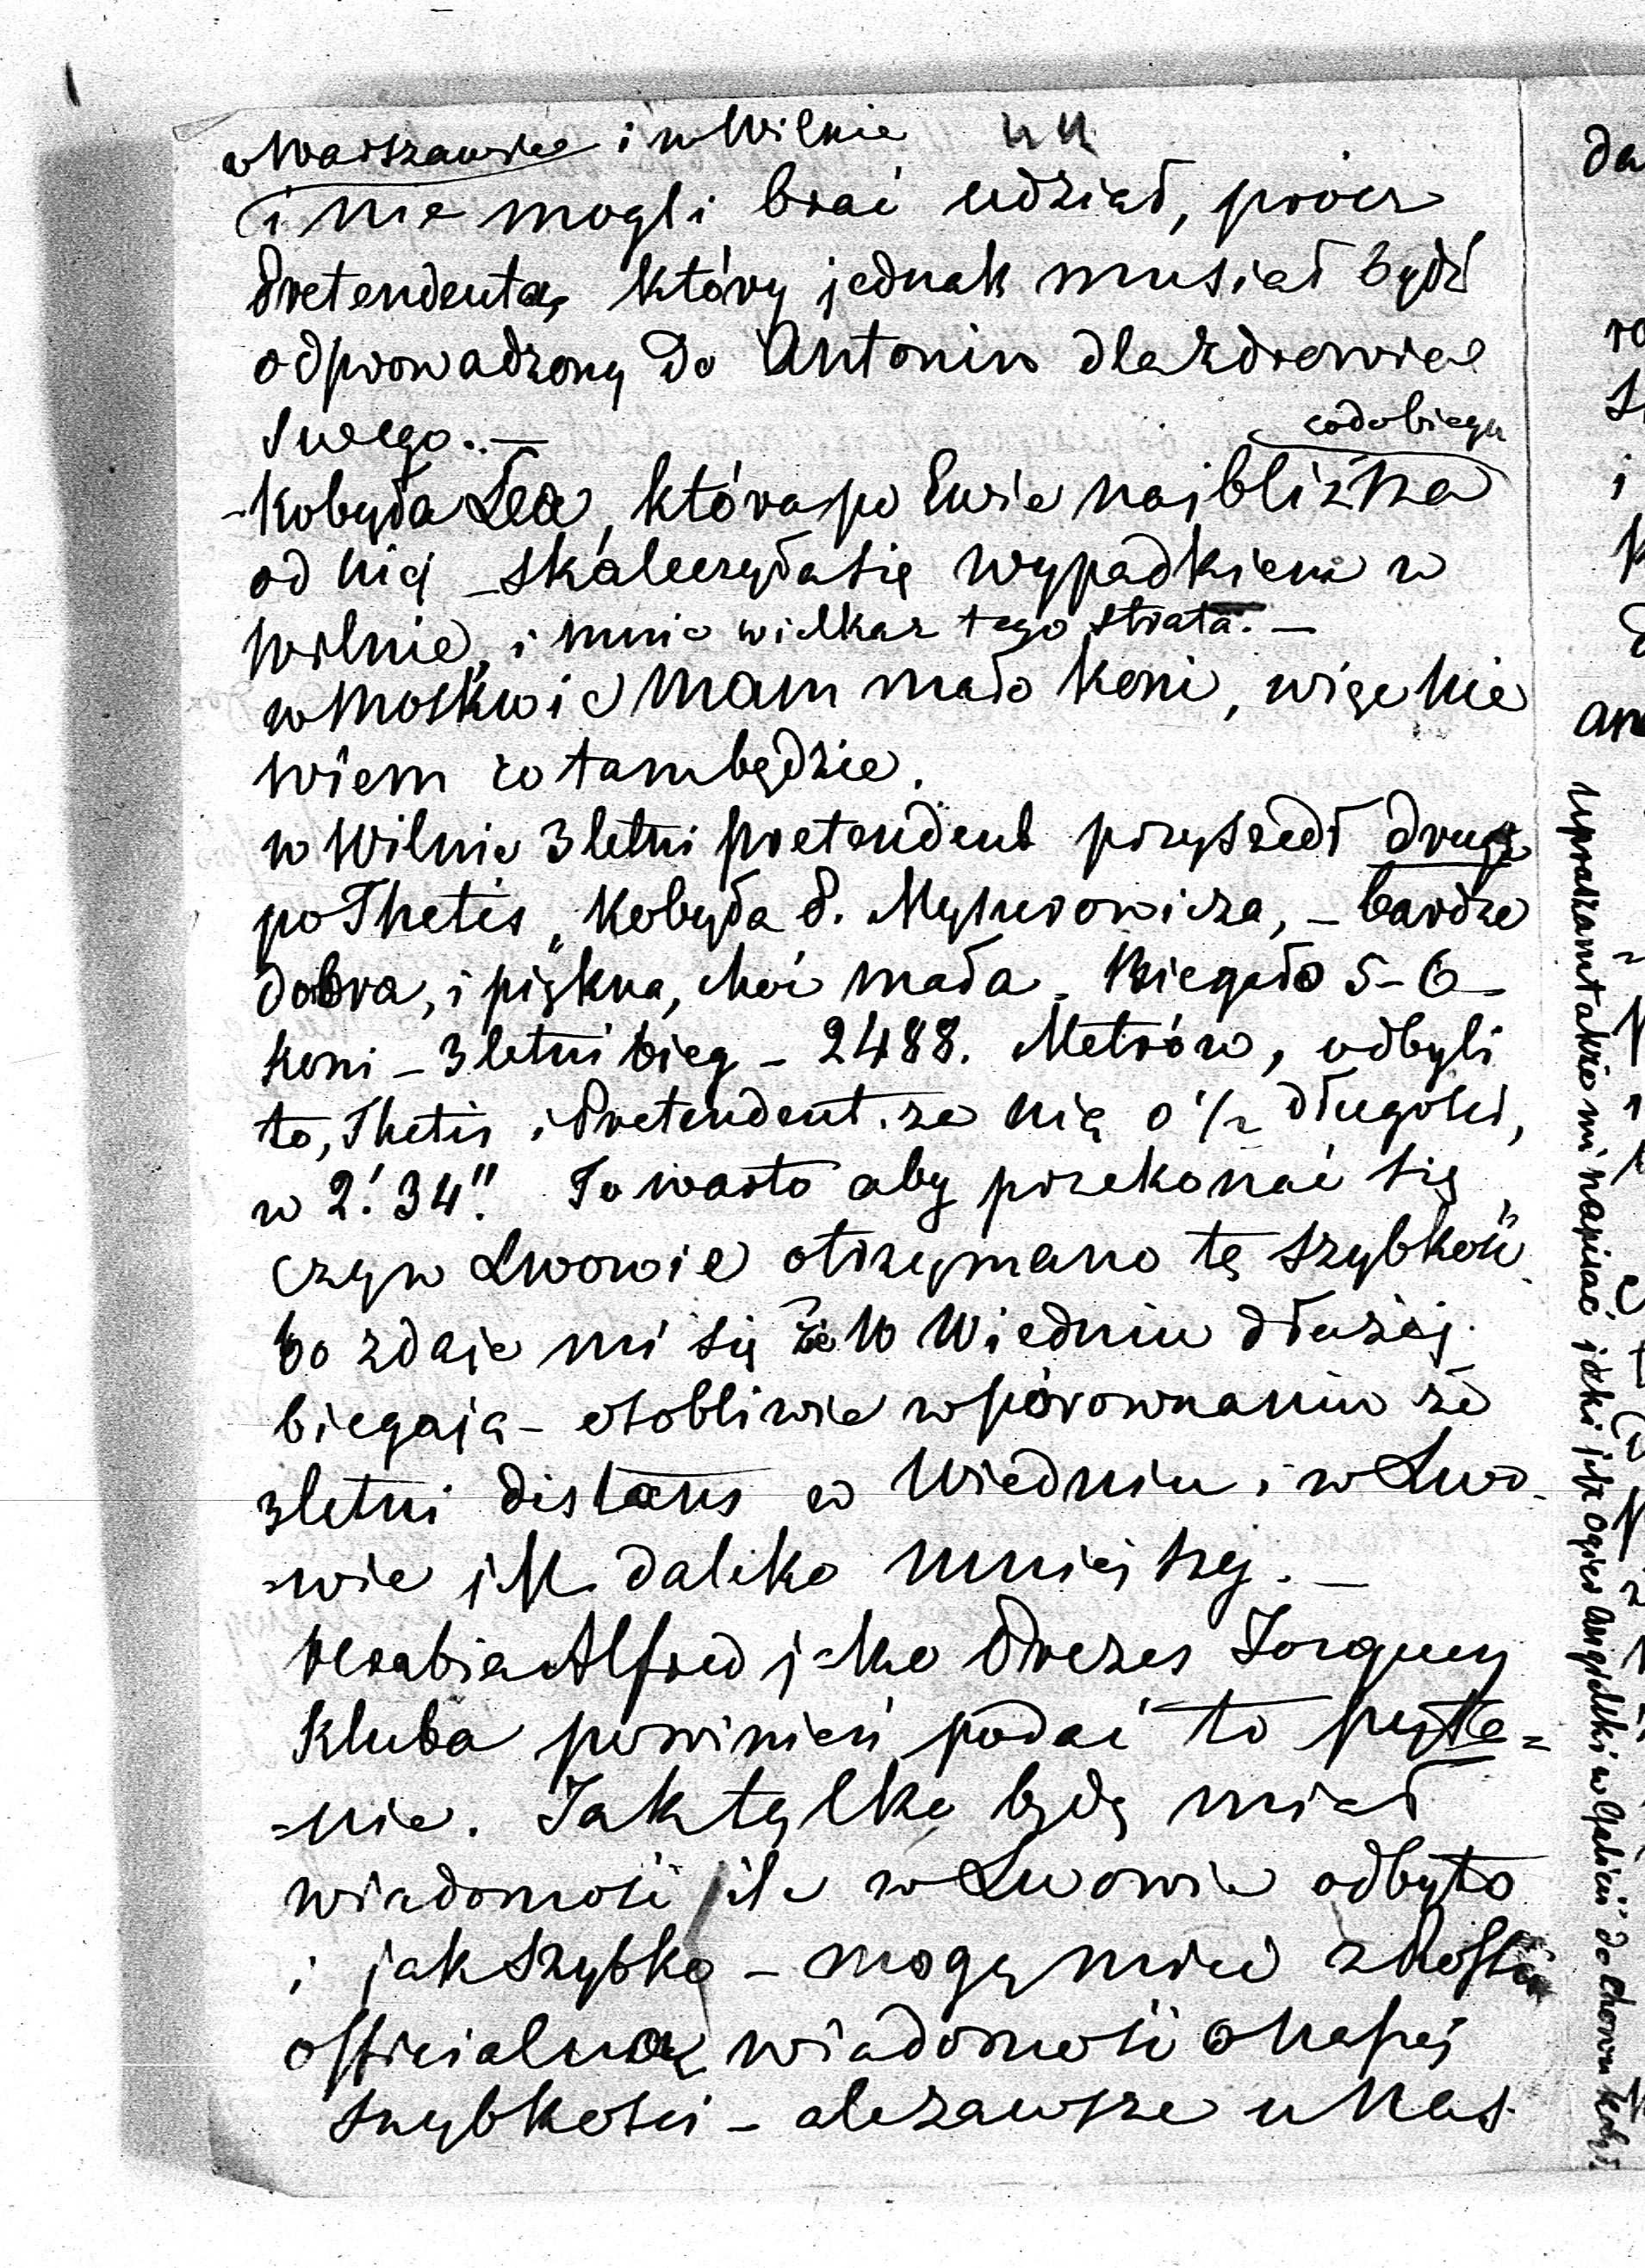 w Warszawie i w Wilnie
i nie mogli brać udział, prócz
Pretendenta, który jednak musiał bydź
odprowadzony do Antonin dla zdrowia
swego. —
co do biegu
- Kobyła Lea, która po Ewie najbliższa
od nij - skaleczyła się wypadkiem w
Wilnie, i mnie wielka z tego strata. —
w Moskwie mam mało koni, więc nie
wiem co tam będzie.
w Wilnie 3 letni pretendent przyszedł drugi
po Thetis, Kobyła P. Mysyrowicza, - bardzo
dobra, i piękna, choć mała. Biegało 5-6-
koni - 3 letni bieg - 2488. Metrów, odbyli
to, Thetis i Pretendent. za nią o ½ długości,
w 2! 34". To warto aby przekonać się
czy w Lwowie otrzymano tę szybkość
bo zdaje mi się że w Wiedniu dłużej
biegają - osobliwie w porównaniu że
3letni distans w Wiedniu i w Lwo-
=wie jest daleko mniejszy. —
Hrabia Alfred jako Prezes Jorquey
Kluba powinień podać to pyta=
=nie. Jak tylko będę miał
wiadomość ile w Lwowie odbyto
i jak szybko - mogę mieć z
officialną wiadomość o naszej
szybkości - ale zawsze u nas
Upraszam także mi napisać jaki jest ogier angielski w Galicii do chowu kobył.
da
ro
i